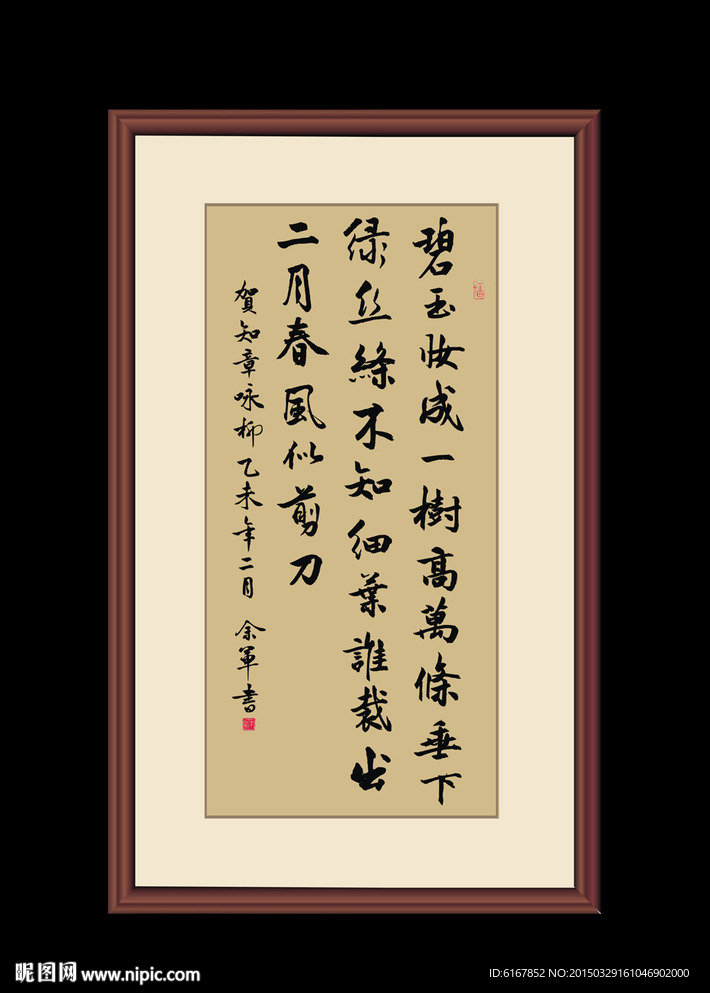 碧玉妝成一樹高萬條垂下
绿丝絛不知细葉誰裁出
二月春風似剪刀
賀知章咏柳乙未年二月 余軍書
昵图网 www.nipic.com
ID:6167852 NO:20150329161046902000